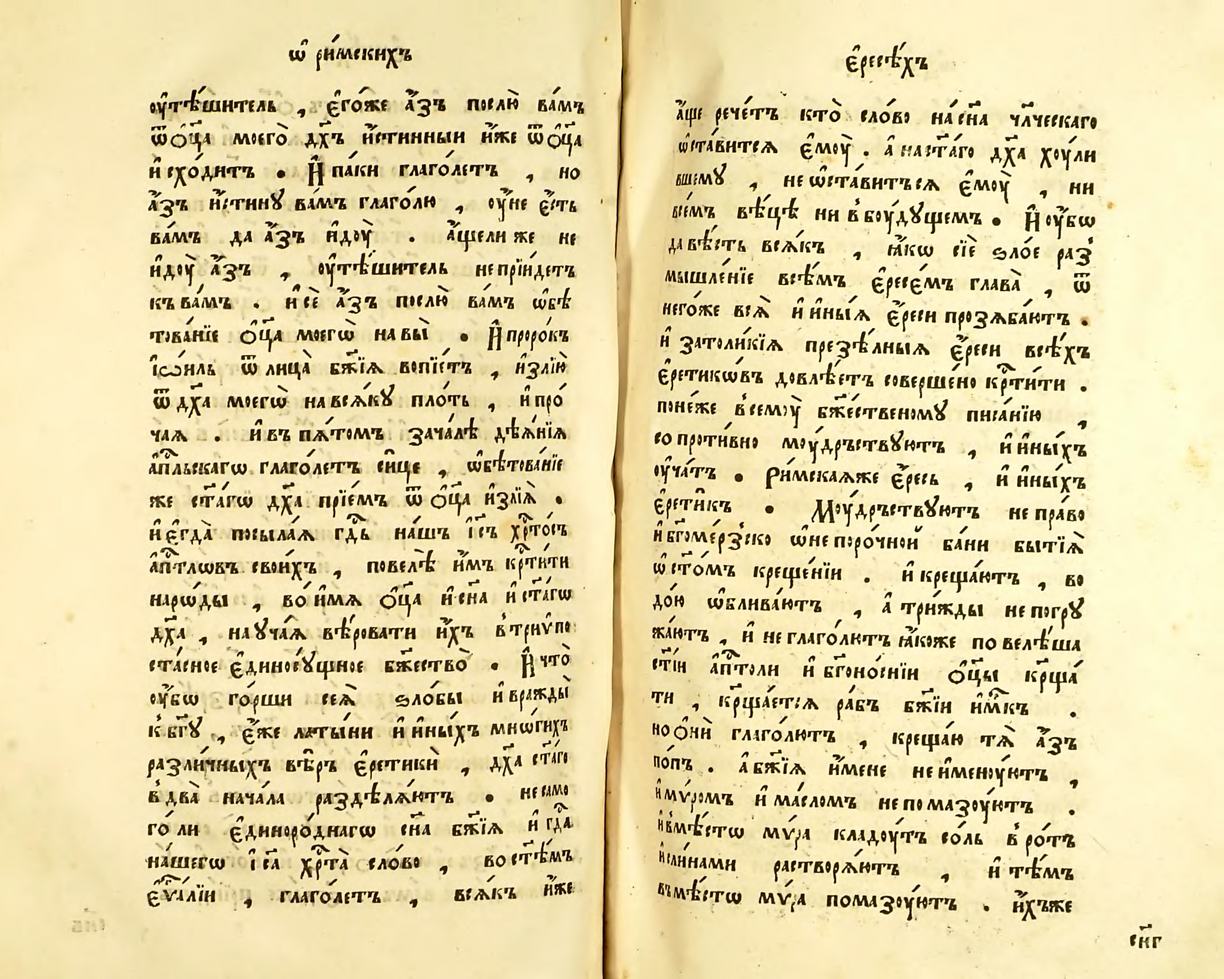 ѡ҆ ри́мскихъ
ᲂу҆тѣ́шитель , є҆го́же а҆́зъ послю̀ ва́мъ
ѿ ѻ҆ц҃а моегѡ̀ дх҃ъ и҆́стинныи и҆́же ѿ ѻ҆ц҃а
и҆схо́дитъ . И҆ па́ки глаго́летъ , но
а҆́зъ и҆́стинꙋ ва́мъ глаго́лю , ᲂу҆́не є҆́сть
ва́мъ да а҆́зъ и҆доу̀ . а҆́щели же не
и҆доу̀ а҆́зъ , ᲂу҆тѣ́шитель не прїи́детъ
къ ва́мъ . и҆ сѐ а҆́зъ послю̀ ва́мъ ѡ҆бѣ
това́нїе ѻ҆ц҃а моегѡ̀ на вы̀ . И҆ проро́къ
і҆ѡи́ль ѿ лица̀ бж҃їѧ вопїе́тъ , и҆злїю̀
ѿ дх҃а моегѡ̀ на всѧ́кꙋ пло́ть , и҆ про́
чаѧ . и҆ въ пѧ́томъ зача́лѣ дѣѧ́нїѧ
а҆пⷭ҇льскагѡ глаго́летъ си́це , ѡ҆бѣтова́нїе
же ст҃а́гѡ дх҃а прїе́мъ ѿ ѻ҆ц҃а и҆злїѧ̀ .
и҆ є҆гда̀ посыла́ѧ гдⷭ҇ь на́шъ і҆с҃ъ хрⷭ҇то́съ
а҆пⷭ҇тлѡвъ свои́хъ , повелѣ̀ и҆̀мъ крⷭ҇ти́ти
наро́ды , во и҆́мѧ ѻ҆ц҃а и҆ сн҃а и҆ ст҃а́гѡ
дх҃а , наꙋча́ѧ вѣ́ровати и҆̀хъ в трїѵпо
ста́сное є҆диносꙋ́щное бжⷭ҇ество̀ . И҆ что̀
ᲂу҆́бѡ го́рши сеѧ̀ ѕло́бы и҆ вражды̀
к бг҃ꙋ , є҆́же латы́ни и҆ и҆ны́хъ мно́гихъ
разли́чныхъ вѣ́ръ є҆ретикѝ , дх҃а ст҃а́го
в два̀ нача́ла раздѣлѧ́ютъ . не само
го́ ли є҆диноро́днагѡ сн҃а бж҃їѧ и҆ гдⷭ҇а
на́шегѡ і҆с҃а хрⷭ҇та̀ сло́во , во ст҃ѣ́мъ
є҆ѵⷢ҇а́лїи , глаго́летъ , всѧ́къ и҆́же
є҆ресѣ́хъ
а҆́ще рече́тъ кто̀ сло́во на сн҃а чл҃ческаго
ѡ҆ста́витсѧ є҆моу̀ . а҆ на ст҃а́го дх҃а хоу́ли
вшемꙋ , не ѡ҆ста́витьсѧ є҆моу̀ , ни
всѐмъ вѣ́цѣ ни в боу́дꙋщемъ . И҆ ᲂу҆́бѡ
да вѣ́сть всѧ́къ , ꙗ҆́кѡ сїѐ ѕло́е раз
мышле́нїе всѣ́мъ є҆ресе́мъ глава̀ , ѿ
него́же всѧ̀ и҆ и҆ны́ѧ є҆́реси прозѧба́ютъ .
и҆ за толи́кїѧ презѣ́лныѧ є҆́реси всѣ́хъ
є҆ретикѡ́въ довлѣ́етъ соверше́но крⷭ҇ти́ти .
поне́же всемоу̀ бжⷭ҇е́ственомꙋ писа́нїю ,
сопроти́вно моу́дръствꙋютъ , и҆ и҆ны́хъ
ᲂу҆ча́тъ . Ри́мскаѧже є҆́ресь , и҆ и҆ны́хъ
є҆рети́къ . Моу́дръствꙋютъ не пра́во
и҆ бг҃оме́рзско ѡ҆ непоро́чной ба́ни бытїѧ̀
ѡ҆ ст҃о́мъ креще́нїи . и҆ креща́ютъ , во
до́ю ѡ҆блива́ютъ , а҆ три́жды не погрꙋ
жа́ютъ , и҆ не глаго́лютъ ꙗ҆́коже повелѣ́ша
ст҃і́и а҆пⷭ҇толи и҆ бг҃оно́снїи ѻ҆ц҃ы крⷭ҇ща́
ти , крⷭ҇ща́етсѧ ра́бъ бж҃їи и҆м҃къ .
но ѻ҆нѝ глаго́лютъ , креща́ю тѧ̀ а҆́зъ
по́пъ . а҆ бж҃їѧ и҆́мене не и҆мену́ютъ ,
и҆ мѵ́ромъ и҆ ма́сломъ не помазоу́ютъ .
и҆ вмѣ́стѡ мѵ́ра кладоу́тъ со́ль в ро́тъ
и҆ сли́нами растворѧ́ютъ , и҆ тѣ́мъ
въмѣ́стѡ мѵ́ра помазоу́ютъ . и҆́хъже
сн҃г